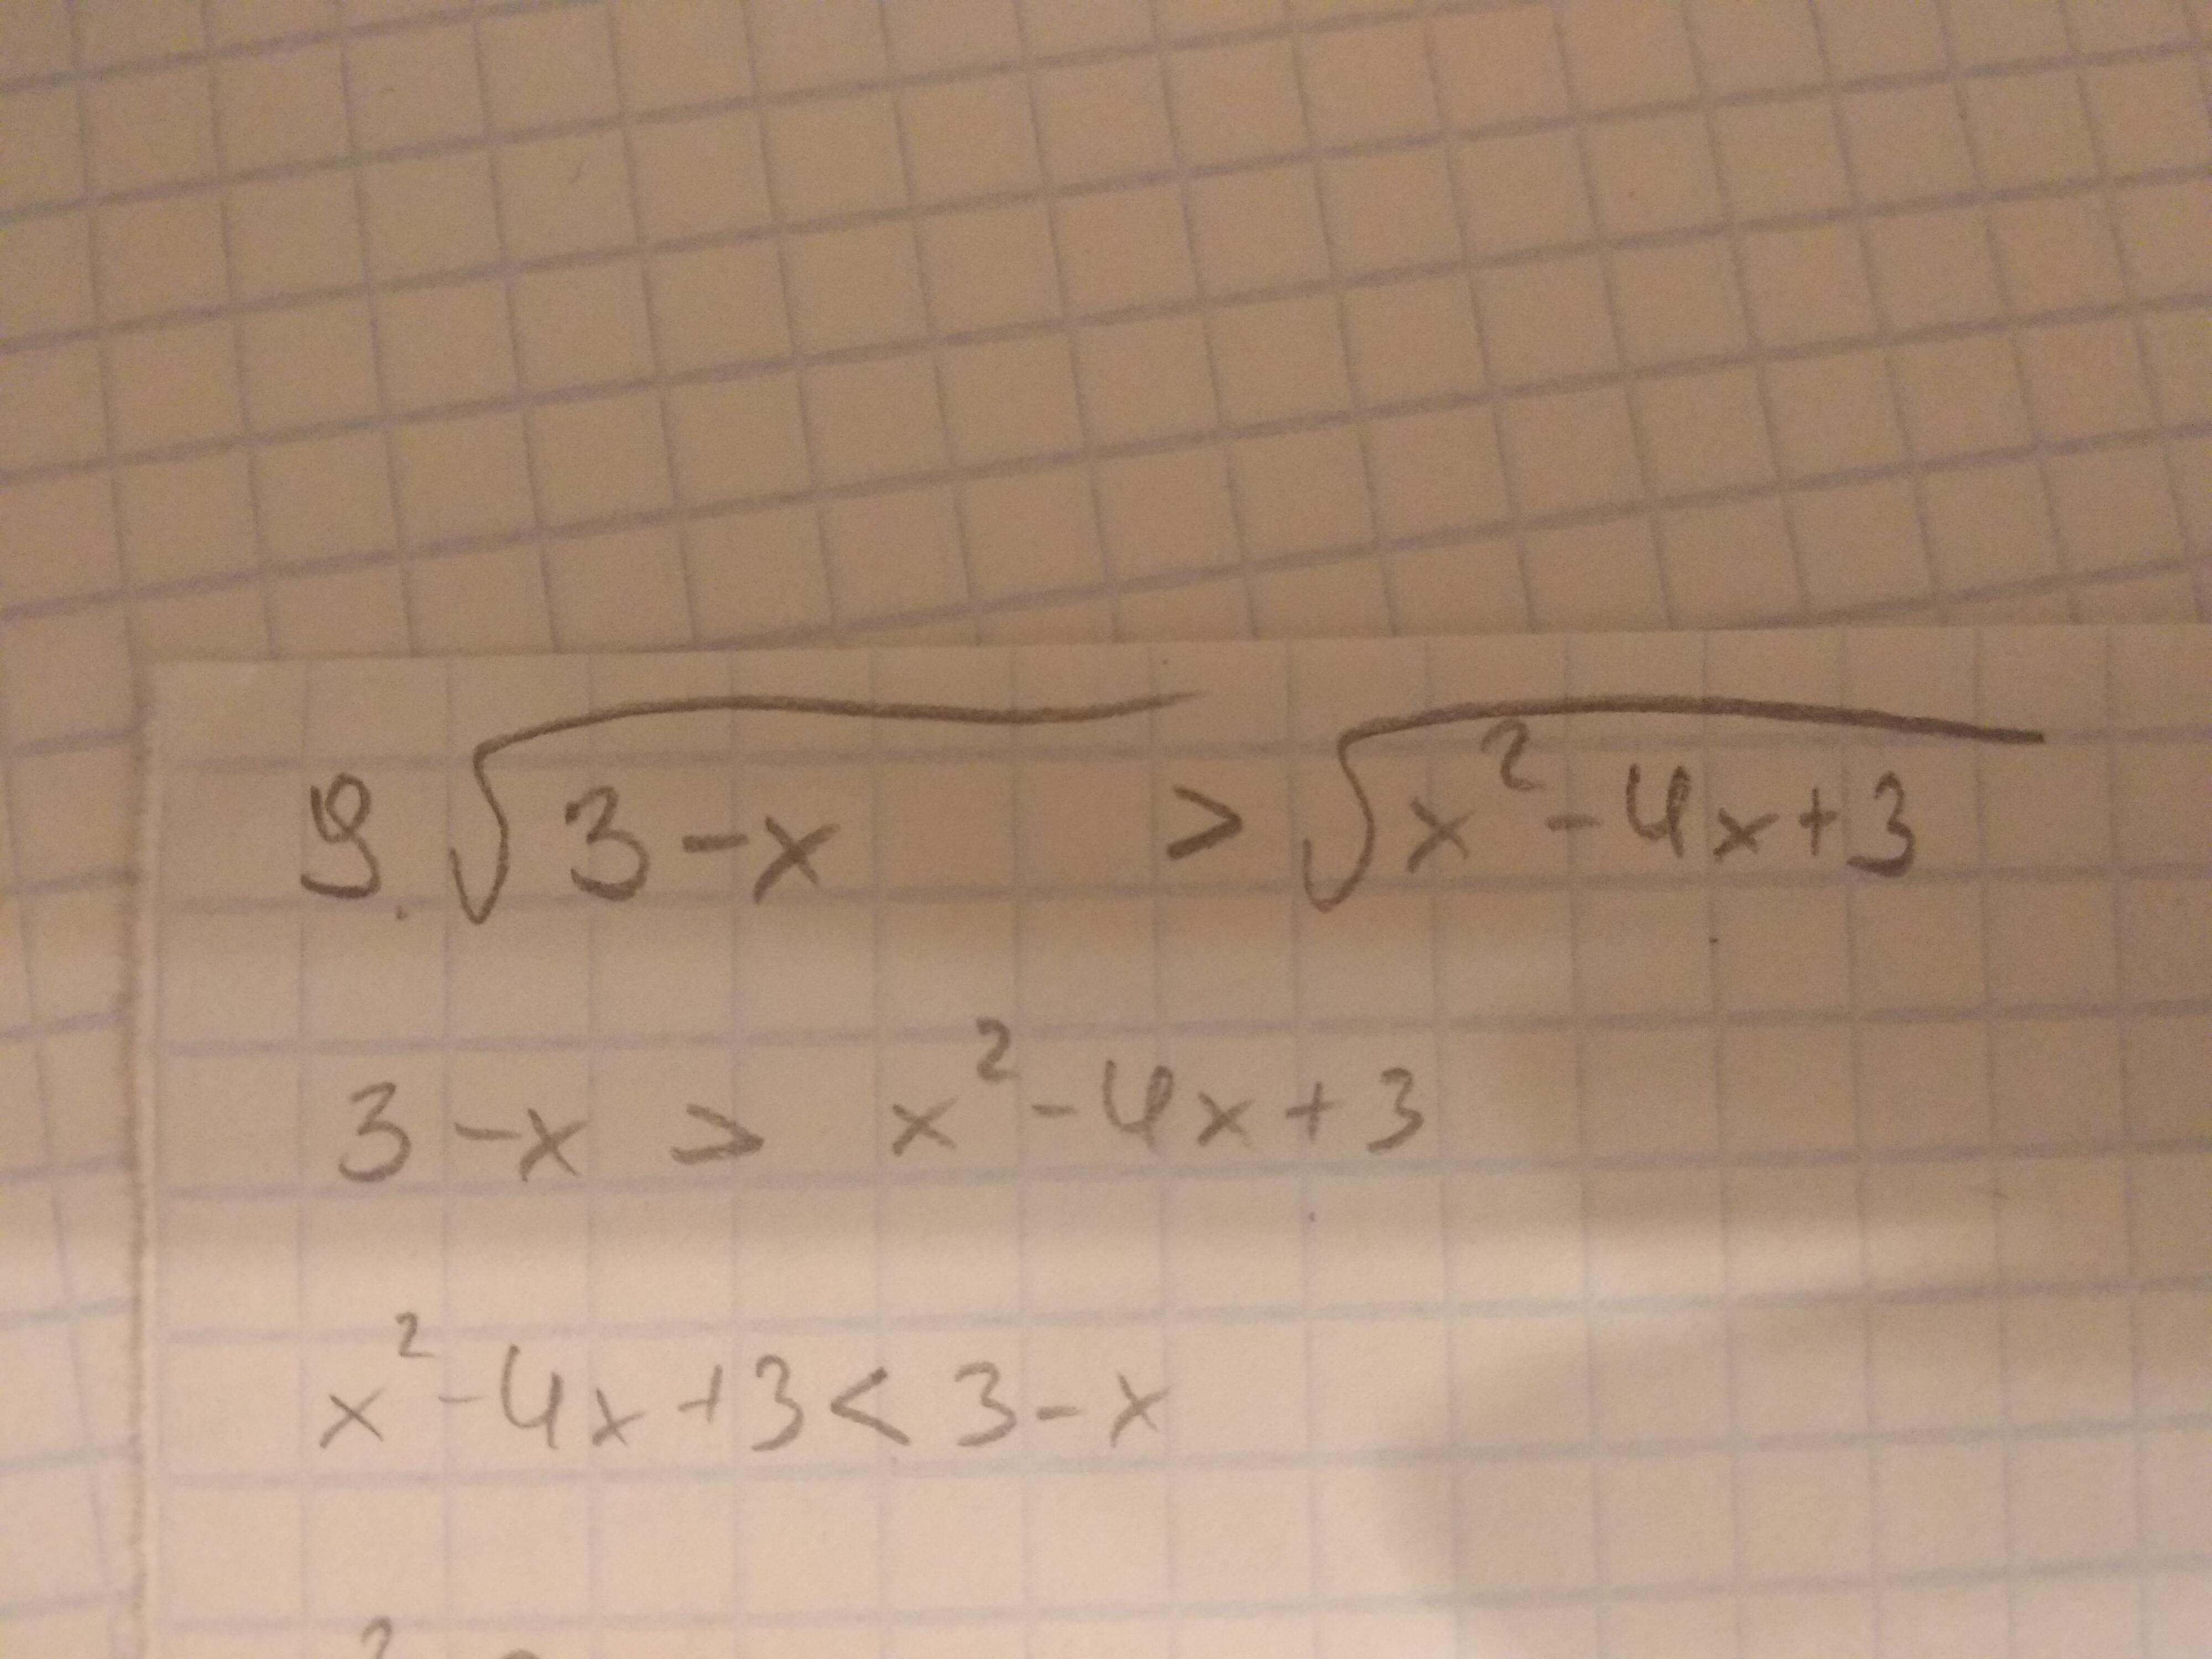 9. √(3-x) > √(x²-4x+3)
3-x > x²-4x+3
x²-4x+3 < 3-x